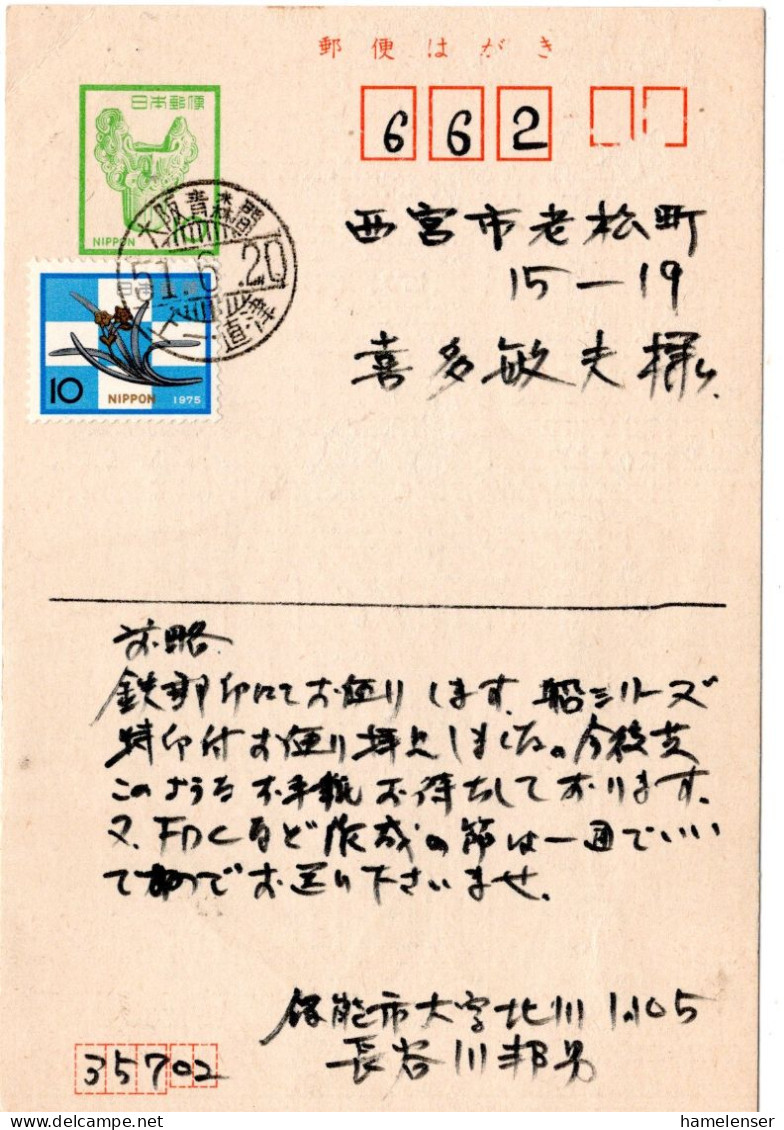 郵便はがき
日本郵便
NIPPON
662
大阪青森間
51.6.20
日本郵便
10 NIPPON 1975
西宮市老松町
15-19
喜多敏夫様
前略
鉄郵印にてお便りします。船シリーズ
特印付お便り拝見しました。今後共
このようなお手紙お待ちしております。
又、FDCなど作成の節は一通でいい
ですのでお送り下さいませ。
飯能市大字北川1105
長谷川邦男
35702
hamelenser